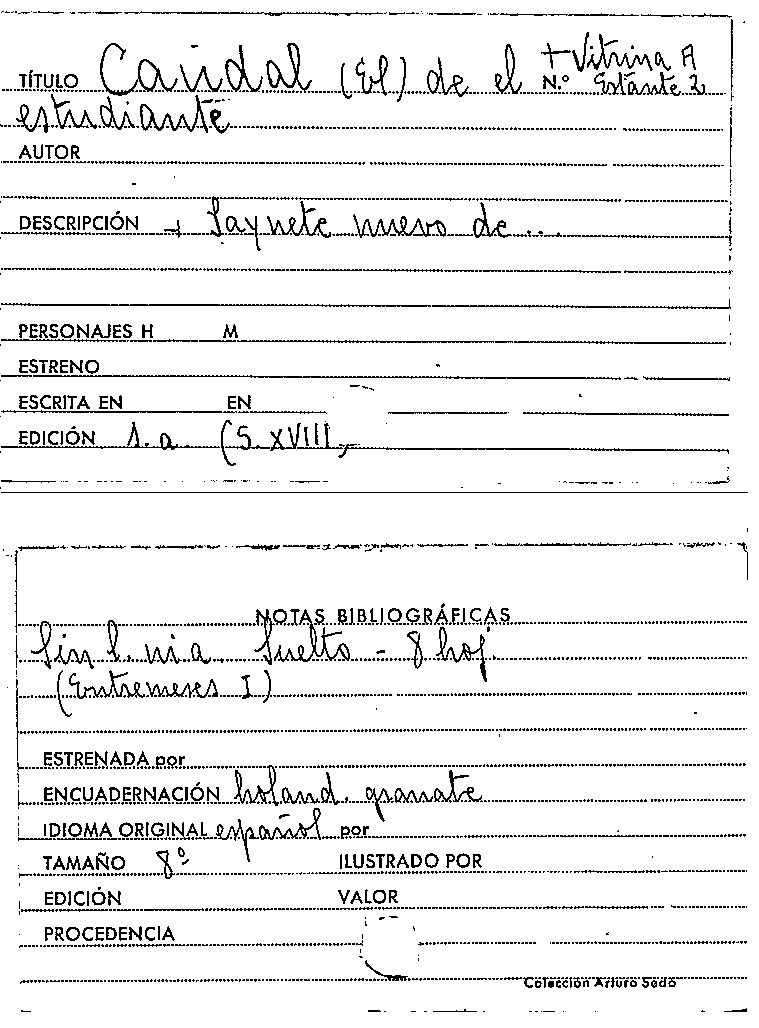 TÍTULO Caudal (El) de el + Vitrina A
N.º Estante 2
estudiante
AUTOR
DESCRIPCIÓN + Saynete nuevo de ...
PERSONAJES H M
ESTRENO
ESCRITA EN EN
EDICIÓN s. a. (S. XVIII)
NOTAS BIBLIOGRÁFICAS
Sin l. ni a. Suelto - 8 hoj.
(Entremeses I)
ESTRENADA por
ENCUADERNACIÓN holand. granate
IDIOMA ORIGINAL español por
TAMAÑO 8º ILUSTRADO POR
EDICIÓN VALOR
PROCEDENCIA
Colección Arturo Sedó